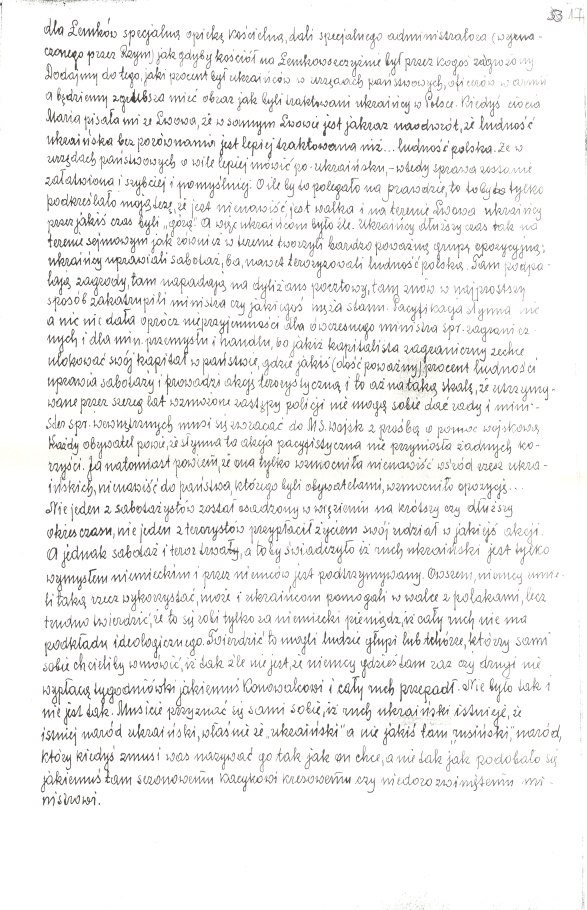 53 17
dla Łemków specjalną opiekę kościelną, dali specjalnego administratora (wyzna-
czonego przez Rzym) jak gdyby kościół na Łemkowszczyźnie był przez kogoś zagrożony
Dodajmy do tego, jaki procent był ukraińców w urzędach państwowych, oficerów w armii
a będziemy z grubsza mieć obraz jak byli traktowani ukraińcy w Polsce. Kiedyś ciocia
Maria pisała mi ze Lwowa, że w samym Lwowie jest jakraz naodwrót, że ludność
ukraińska bez porównania jest lepiej traktowana niż... ludność polska. Że w
urzędach państwowych o wiele lepiej mówić po-ukraińsku, - wtedy sprawa zostanie
załatwiona i szybciej i pomyślniej. O ile by to polegało na prawdzie, to to by to tylko
podkreślało moją tezę, że jest nienawiść, jest walka i na terenie Lwowa ukraińcy
przez jakiś czas byli „górą". A więc ukraińcom było źle. Ukraińcy dłuższy czas tak na
terenie sejmowym jak również w terenie tworzyli bardzo poważną grupę opozycyjną;
ukraińcy uprawiali sabotaż, ba, nawet teroryzowali ludność polską. Tam podpa-
lają zagrody, tam napadają na dyliżans pocztowy, tam znów w najprostszy
sposób zakatrupili ministra czy jakiegoś męża stanu. Pacyfikacja słynna nic
a nic nie dała oprócz nieprzyjemności dla ówczesnego ministra spr. zagranicz-
nych i dla min. przemysłu i handlu, bo jakiż kapitalista zagraniczny zechce
ulokować swój kapitał w państwie, gdzie jakiś (dość poważny) procent ludności
uprawia sabotaży i prowadzi akcję terorystyczną i to aż na taką skalę, że utrzymy-
wane przez szereg lat wzmożone zastępy policji nie mogą sobie dać rady i mini-
ster spr. wewnętrznych musi się zwracać do M.S. Wojsk z prośbą o pomoc wojskową
Każdy obywatel powie, że słynna ta akcja pacyfistyczna nie przyniosła żadnych ko-
rzyści. Ja natomiast powiem, że ona tylko wzmocniła nienawiść wśród rzesz ukra-
ińskich, nienawiść do państwa, którego byli obywatelami, wzmocniło opozycję...
Nie jeden z sabotażystów został osadzony w więzieniu na krótszy czy dłuższy
okres czasu, nie jeden z terorystów przypłacił życiem swój udział w jakiejś akcji.
A jednak sabotaż i teror trwały, a to by świadczyło iż ruch ukraiński jest tylko
wymysłem niemieckim i przez niemców jest podtrzymywany. Owszem, niemcy umie-
li taką rzecz wykorzystać, może i ukraińcom pomogali w walce z polakami, lecz
trudno twierdzić, że to się robi tylko za niemiecki pieniądz, iż cały ruch nie ma
podkładu ideologicznego. Twierdzić to mogli ludzie głupi lub tchórze, którzy sami
sobie chcieliby wmówić, iż tak źle nie jest, że niemcy gdzieś tam raz czy drugi nie
wypłacą tygodniówki jakiemuś Konowalcowi i cały ruch przepadł. Nie było tak i
nie jest tak. Musicie przyznać się sami sobie, iż ruch ukraiński istnieje, że
istniej naród ukraiński, właśnie że „ukraiński" a nie jakiś tam „rusiński," naród,
który kiedyś zmusi was nazywać go tak jak on chce, a nie tak jak podobało się
jakiemuś tam sezonowemu kacykowi kresowemu czy niedorozwiniętemu mi-
nistrowi.